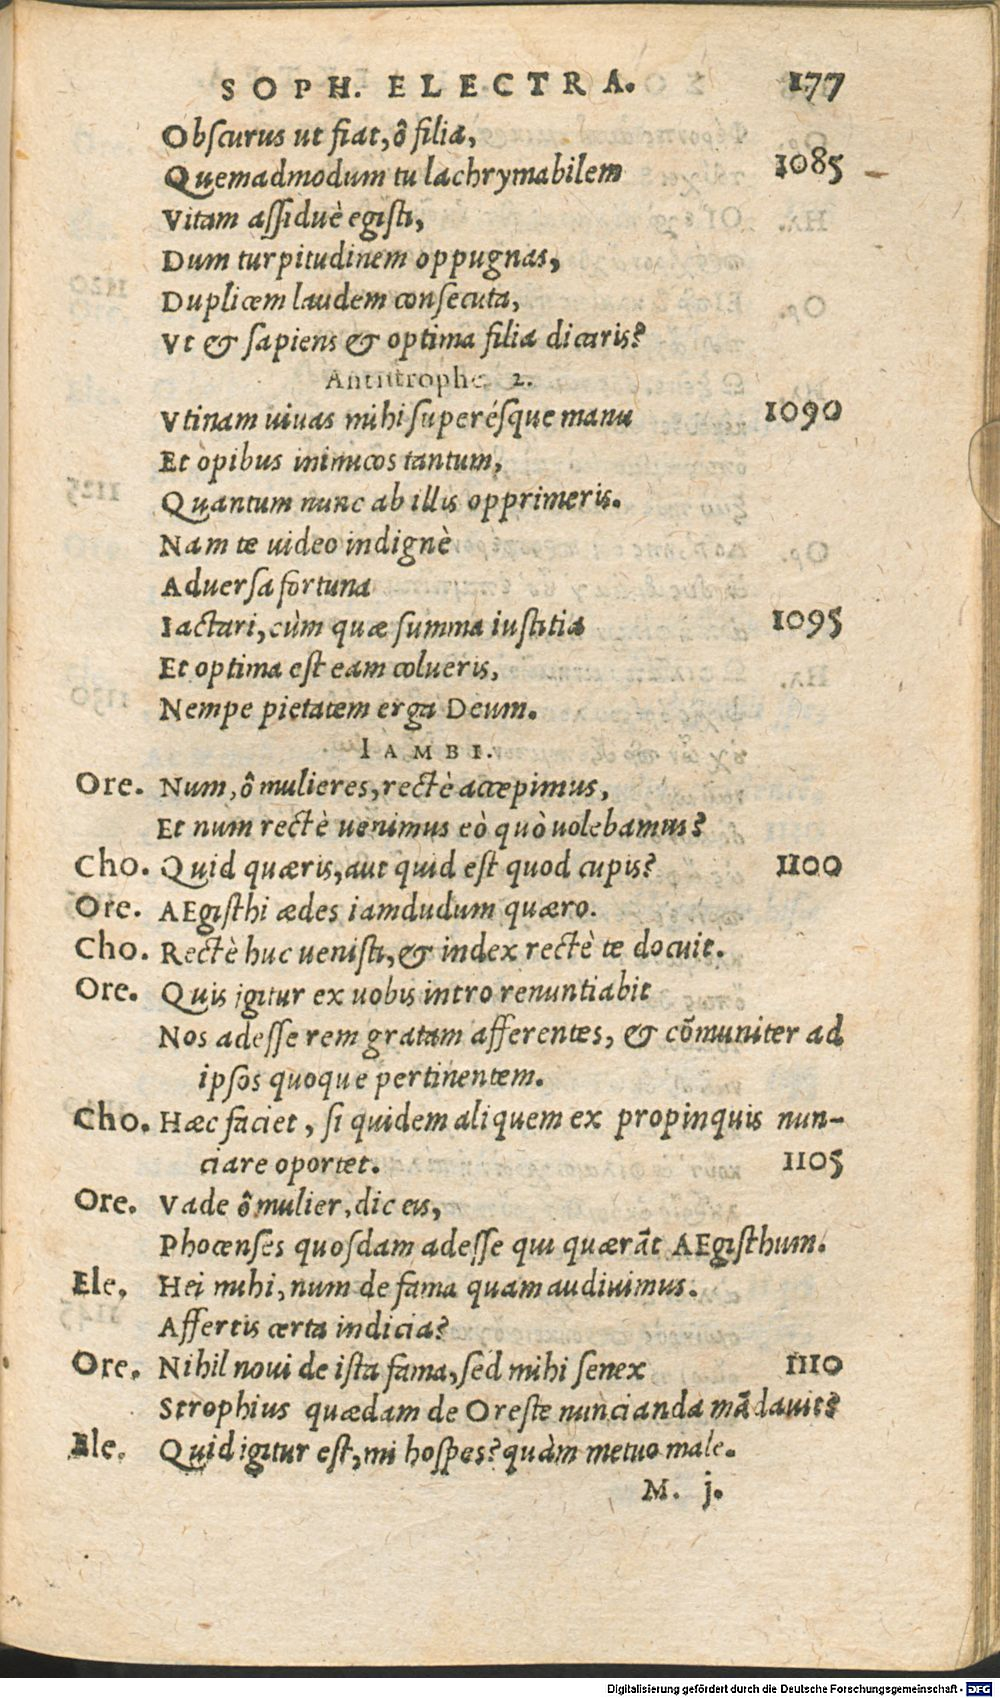 SOPH. ELECTRA. 177
Obscurus ut fiat, ô filia,
Quemadmodum tu lachrymabilem 1085
Vitam assiduè egisti,
Dum turpitudinem oppugnas,
Duplicem laudem consecuta,
Vt & sapiens & optima filia dicaris?
Antistrophe. 2.
Vtinam uiuas mihi superésque manu 1090
Et opibus inimicos tantum,
Quantum nunc ab illis opprimeris.
Nam te uideo indignè
Aduersa fortuna
Iactari, cùm quæ summa iustitia 1095
Et optima est eam colueris,
Nempe pietatem erga Deum.
IAMBI.
Ore. Num, ô mulieres, rectè accepimus,
Et num rectè uenimus eò quò uolebamus?
Cho. Quid quæris, aut quid est quod cupis? 1100
Ore. AEgisthi ædes iamdudum quæro.
Cho. Rectè huc uenisti, & index rectè te docuit.
Ore. Quis igitur ex uobis intro renuntiabit
Nos adesse rem gratam afferentes, & cōmuniter ad
ipsos quoque pertinentem.
Cho. Hæc faciet, si quidem aliquem ex propinquis nun-
ciare oportet. 1105
Ore. Vade ô mulier, dic eis,
Phocenses quosdam adesse qui quærāt AEgisthum.
Ele. Hei mihi, num de fama quam audiuimus.
Affertis certa indicia?
Ore. Nihil noui de ista fama, sed mihi senex 1110
Strophius quædam de Oreste nuncianda mādauit?
Ele. Quid igitur est, mi hospes? quàm metuo male.
M. j.
Digitalisierung gefördert durch die Deutsche Forschungsgemeinschaft - DFG